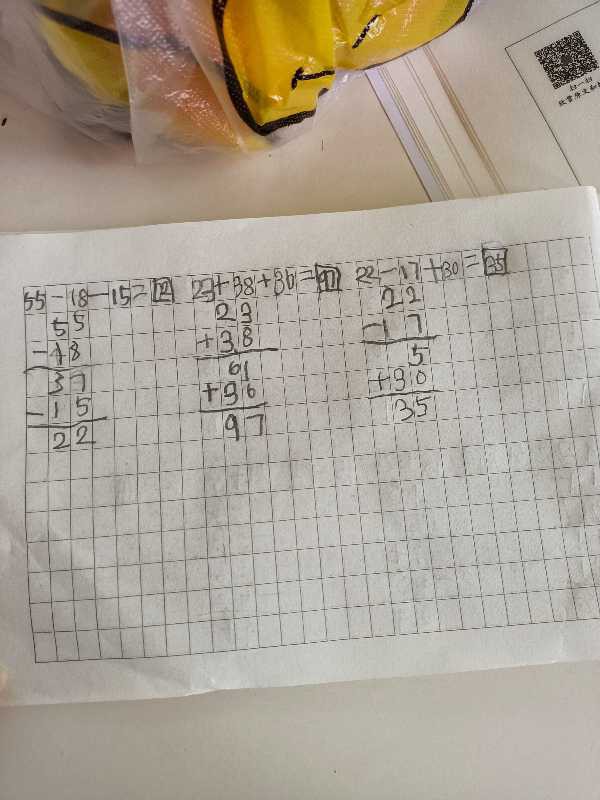 55-18-15=22 23+38+36=97 22-17+30=35
55
-18
37
-15
22
23
+38
61
+36
97
22
-17
5
+30
35
扫一扫